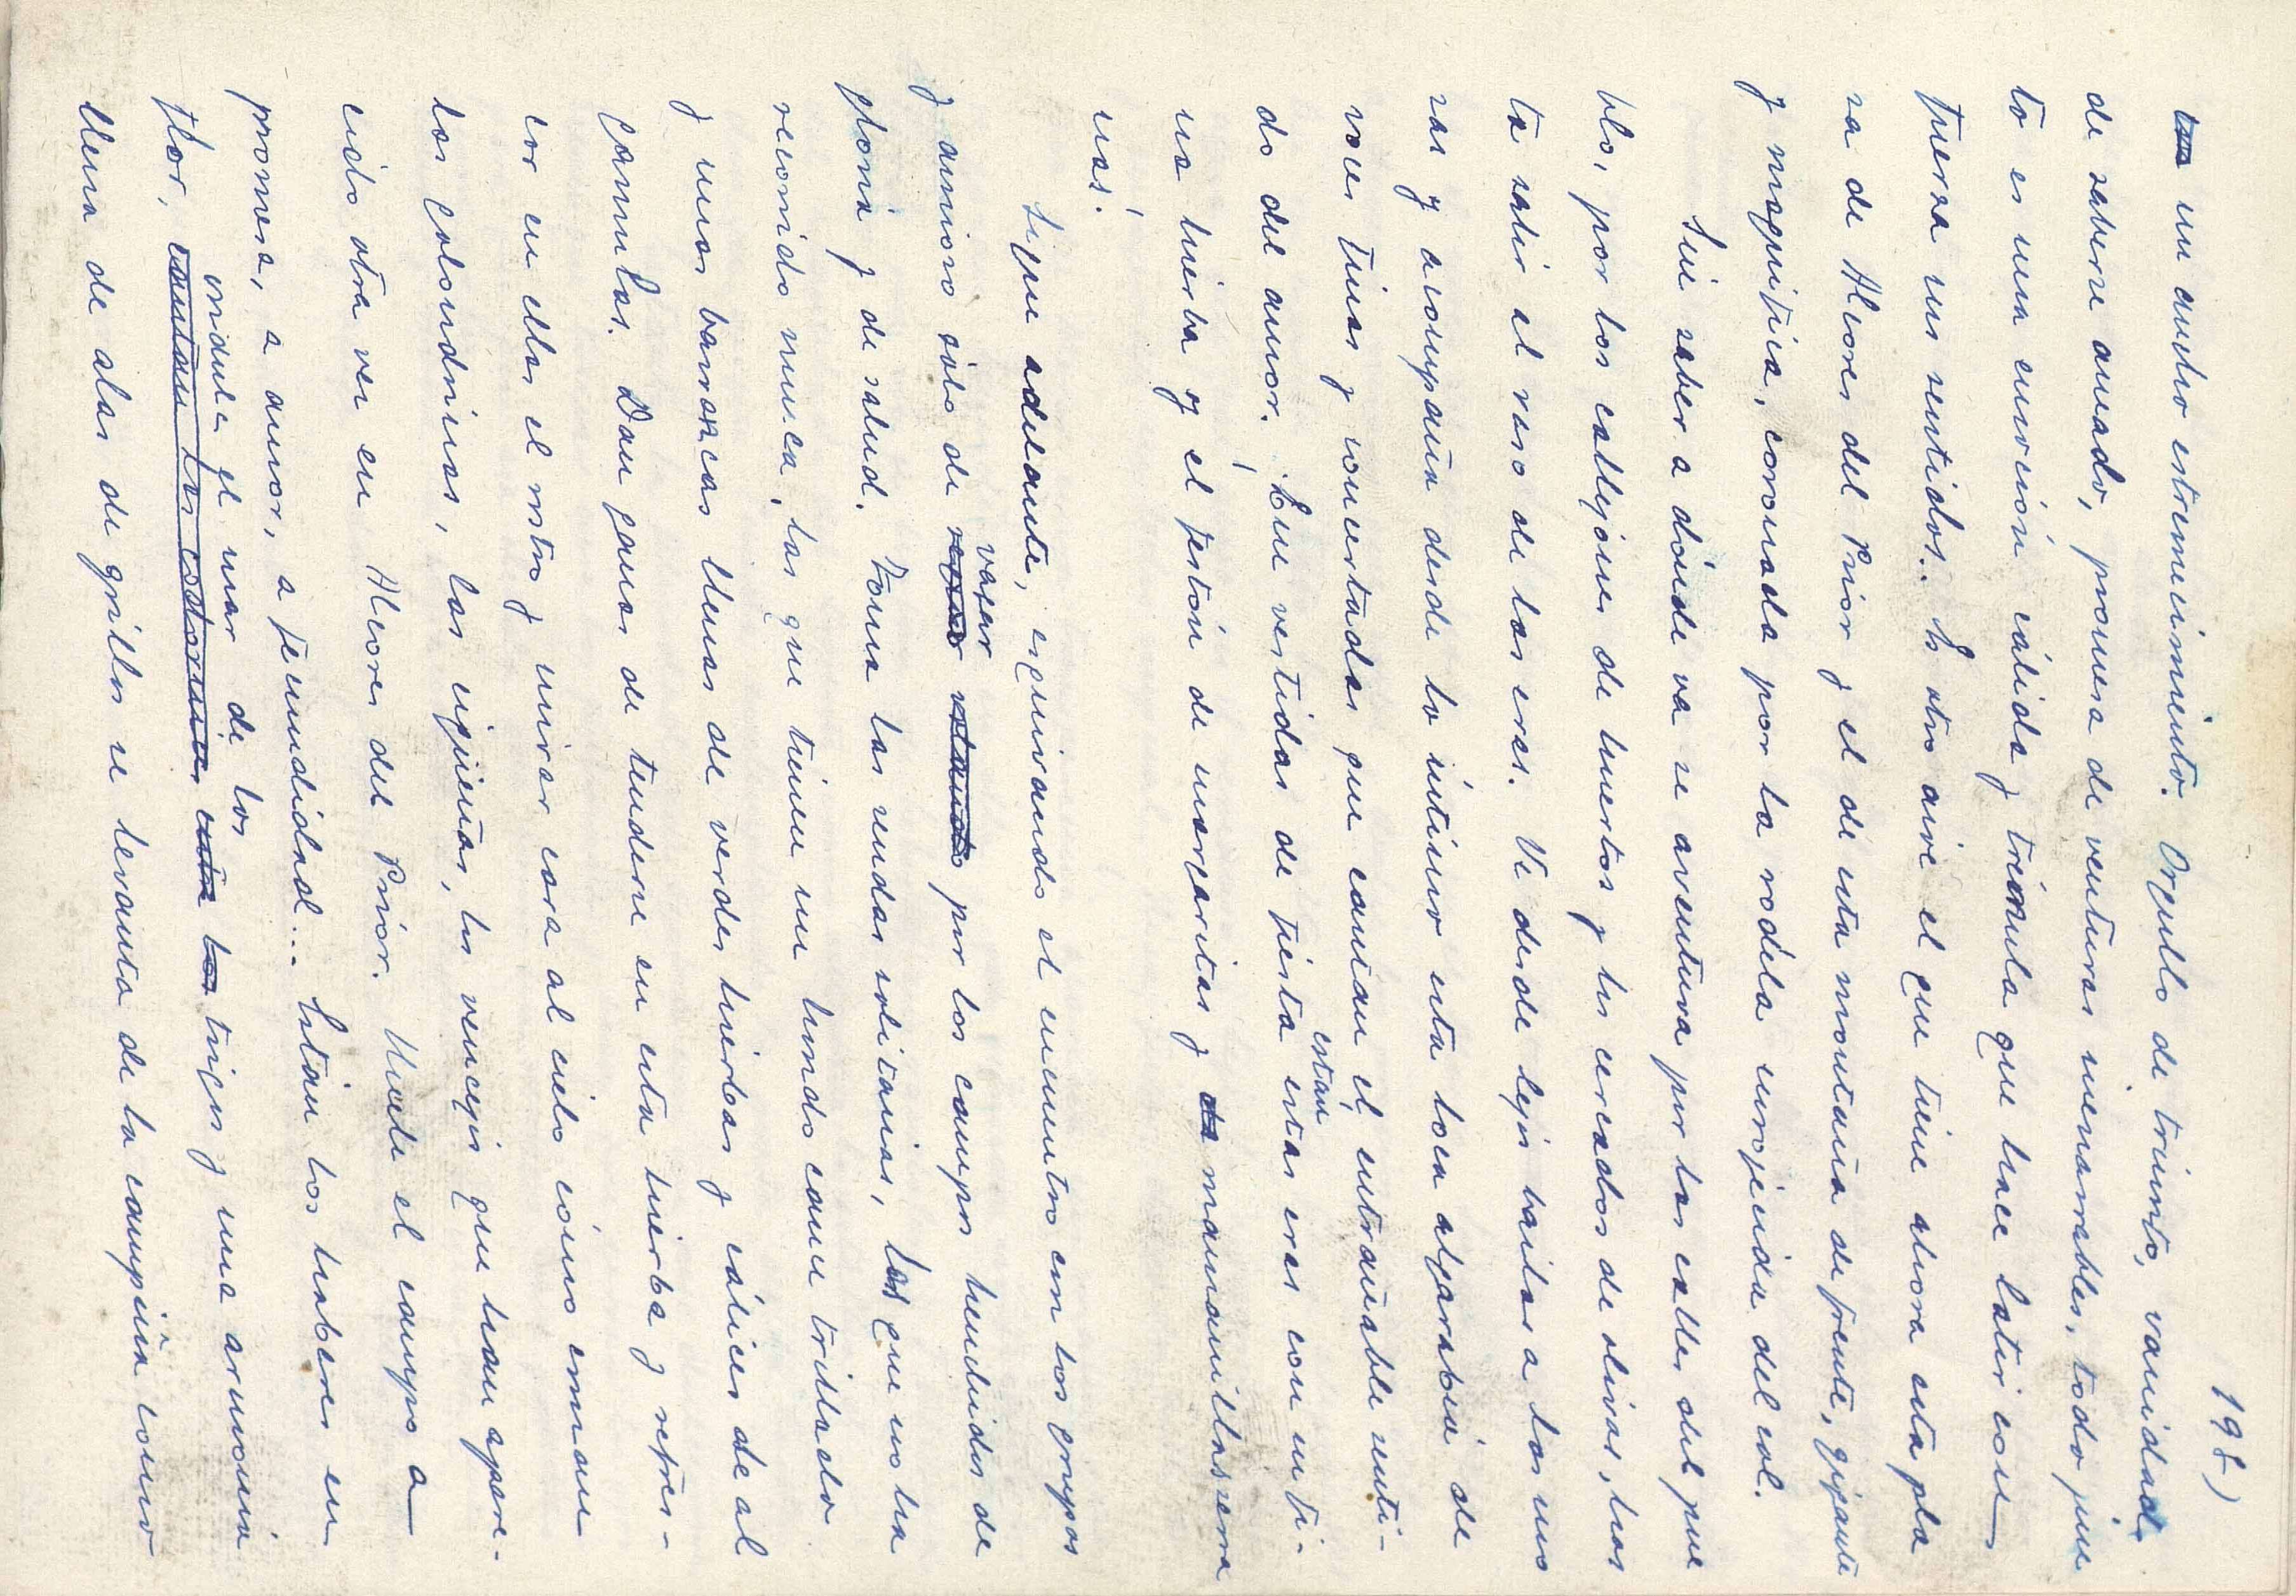 198)
un ancho estremecimiento. Orgullo de triunfo, vanidad
de saberse amado, promesa de venturas inenarrables, todo jun
to es una emoción cálida y trémula que hace latir con
fuerza sus sentidos. Es otro aire el que tiene ahora esta pla
za de Alcores del Prior y el de esta montaña de frente, gigante
y magnífica, coronada por la rodela enrojecida del sol.
Sin saber a dónde va se aventura por las calles del pue
blo, por los callejones de huertos y los cercados de olivas, has
ta salir al raso de las eras. Ve desde lejos bailar a las mo
zas y acompaña desde lo íntimo esta loca algarabía de
voces finas y concertadas que cantan el entrañable senti-
do del amor. ¡Qué vestidas de fiesta están estas eras con su fi-
na hierba y el festón de margaritas y mamanillas serra
nas!
Sigue adelante, esquivando el encuentro con los grupos
y ansioso sólo de vagar por los campos henchidos de
gloria y de salud. Toma las sendas solitarias, las que no ha
recorrido nunca, las que tienen un hondo cauce trillado
y unos barrancos llenos de verdes hierbas y cálices de al
garrullas. Dan ganas de tenderse en esta hierba y refres-
car en ellas el rostro y mirar cara al cielo cómo cruzan
las golondrinas, las cigüeñas, los vencejos que han apare-
cido otra vez en Alcores del Prior. Huele el campo a
promesa, a amor, a fecundidad... Están los habares en
flor, ondula el mar de los trigos y una armonía
llena de alas de grillos se levanta de la campiña como